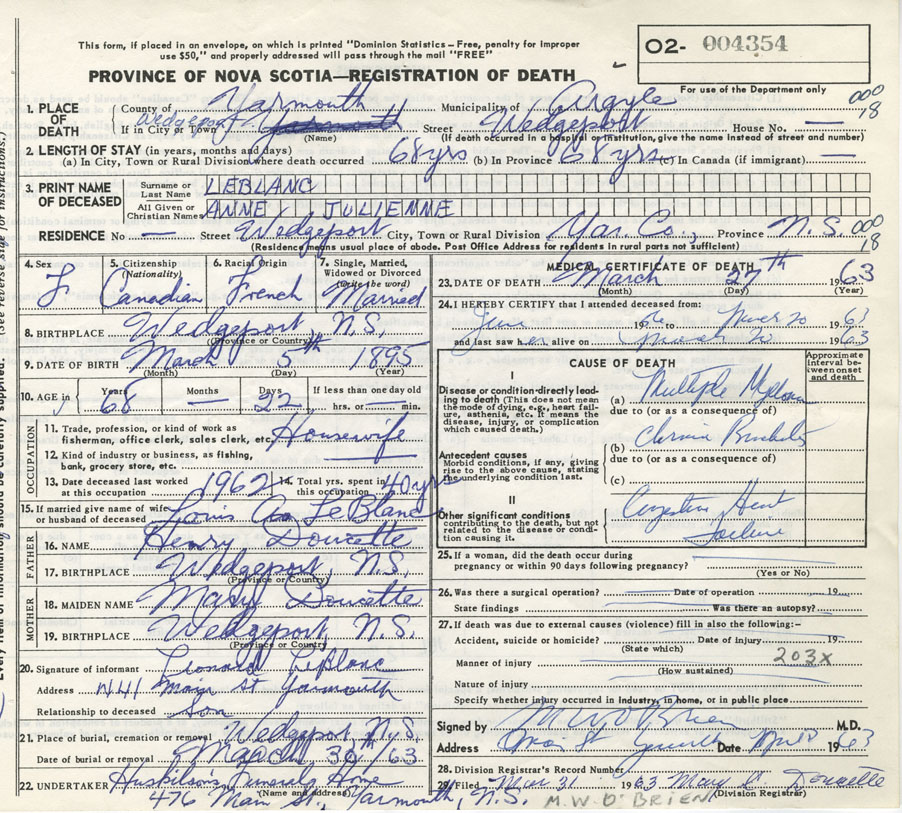 This form, if placed in an envelope, on which is printed "Dominion Statistics – Free, penalty for improper
use $50," and properly addressed will pass through the mail "FREE"
O2- 004354
PROVINCE OF NOVA SCOTIA—REGISTRATION OF DEATH
For use of the Department only
1. PLACE OF DEATH
County of Yarmouth Municipality of Argyle 000 18
If in City or Town Wedgeport Yarmouth (Name) Street Wedgeport House No. —
(If death occurred in a hospital or institution, give the name instead of street and number)
2. LENGTH OF STAY (in years, months and days)
(a) In City, Town or Rural Division where death occurred 68 yrs (b) In Province 68 yrs (c) In Canada (if immigrant) —
3. PRINT NAME OF DECEASED
Surname or Last Name LEBLANC
All Given or Christian Names ANNE JULIEMME
RESIDENCE No — Street Wedgeport City, Town or Rural Division Yar. Co., Province N.S. 000 18
(Residence means usual place of abode. Post Office Address for residents in rural parts not sufficient)
4. Sex F.
5. Citizenship (Nationality) Canadian
6. Racial Origin French
7. Single, Married, Widowed or Divorced (Write the word) Married
8. BIRTHPLACE Wedgeport, N.S.
(Province or Country)
9. DATE OF BIRTH March 5th 1895
(Month) (Day) (Year)
10. AGE in Years 68 Months — Days 22 If less than one day old hrs. or — min.
OCCUPATION
11. Trade, profession, or kind of work as fisherman, office clerk, sales clerk, etc. Housewife
12. Kind of industry or business, as fishing, bank, grocery store, etc. —
13. Date deceased last worked at this occupation 1962
14. Total yrs. spent in this occupation 40 yrs
15. If married give name of wife or husband of deceased Louis LeBlanc
FATHER
16. NAME Henry Doucette
17. BIRTHPLACE Wedgeport, N.S.
(Province or Country)
MOTHER
18. MAIDEN NAME Mary Doucette
19. BIRTHPLACE Wedgeport, N.S.
(Province or Country)
20. Signature of informant LeBlanc
Address Main St Yarmouth
Relationship to deceased Son
21. Place of burial, cremation or removal Wedgeport N.S.
Date of burial or removal March 30th /63
22. UNDERTAKER Huskilson's Funeral Home
(Name and address)
476 Main St., Yarmouth, N.S.
MEDICAL CERTIFICATE OF DEATH
23. DATE OF DEATH March 27th 1963
(Month) (Day) (Year)
24. I HEREBY CERTIFY that I attended deceased from:
June 19 to 20 1963
and last saw her alive on March 20 1963
CAUSE OF DEATH
Approximate interval between onset and death
I
Disease or condition directly leading to death (This does not mean the mode of dying, e.g., heart failure, asthenia, etc. It means the disease, injury, or complication which caused death.)
(a) Multiple Myeloma
due to (or as a consequence of)
Antecedent causes
Morbid conditions, if any, giving rise to the above cause, stating the underlying condition last.
(b) Chronic Bronchitis
due to (or as a consequence of)
(c)
II
Other significant conditions
contributing to the death, but not related to the disease or condition causing it.
Congestive Heart
Failure
25. If a woman, did the death occur during
pregnancy or within 90 days following pregnancy?
(Yes or No)
26. Was there a surgical operation? Date of operation 19
State findings Was there an autopsy?
27. If death was due to external causes (violence) fill in also the following:–
Accident, suicide or homicide? Date of injury 19
(State which)
203X
Manner of injury
(How sustained)
Nature of injury
Specify whether injury occurred in industry, in home, or in public place
Signed by M W O'Brien M.D.
Address Main St Yarmouth Date 1963
28. Division Registrar's Record Number
29. Filed Mar 31 1963 Mary Doucette
(Division Registrar)
M.W.O'BRIEN
(See reverse side for instructions.)
Every item of information should be carefully supplied.